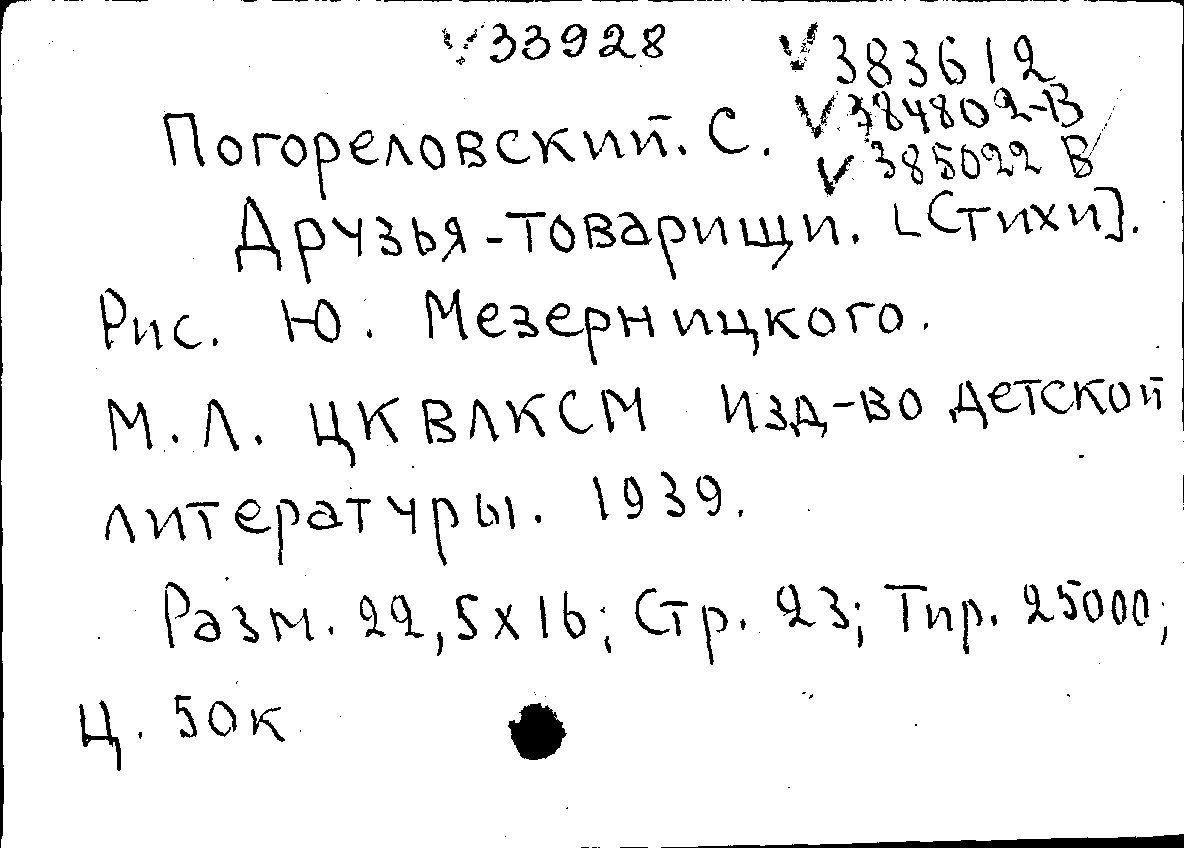 V 33928
V 383612
V 384802-В
V 385022 В
Погореловский. С.
Друзья-товарищи. [Стихи].
Рис. Ю. Мезерницкого.
М. Л. ЦК ВЛКСМ Изд-во детской
литературы. 1939.
Разм. 22,5х16; Стр. 23; Тир. 25000;
Ц. 50к